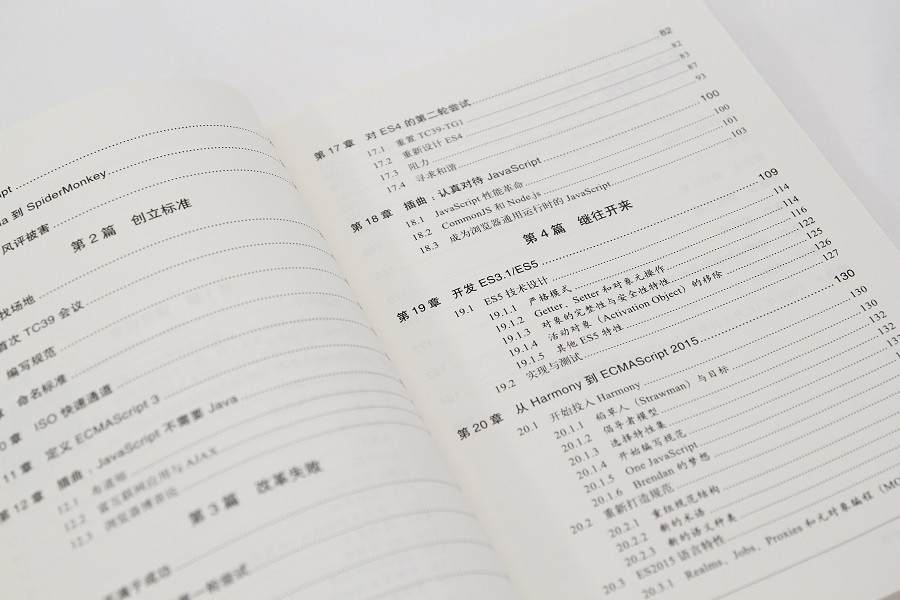 ipt
a 到 SpiderMonkey
风评被害
第 2 篇 创立标准
找场地
首次 TC39 会议
编写规范
章 命名标准
0 章 ISO 快速通道
11 章 定义 ECMAScript 3
第 12 章 插曲，JavaScript 不需要 Java
12.1
12.2 富互联网应用与 AJAX
12.3 浏览器博弈论
第 3 篇 改革失败
一轮尝试
82
第 17 章 对 ES4 的第二轮尝试 82
17.1 重置 TC39-TG1 83
17.2 重新设计 ES4 87
17.3 阻力 93
17.4 寻求和谐
100
第 18 章 插曲：认真对待 JavaScript 100
18.1 JavaScript 性能革命 101
18.2 CommonJS 和 Node.js 103
18.3 成为浏览器通用运行时的 JavaScript
第 4 篇 继往开来
109
第 19 章 开发 ES3.1/ES5 114
19.1 ES5 技术设计 114
19.1.1 严格模式 116
19.1.2 Getter、Setter 和对象元操作 122
19.1.3 对象的完整性与安全性特性 125
19.1.4 活动对象（Activation Object）的移除 126
19.1.5 其他 ES5 特性 127
19.2 实现与测试
130
第 20 章 从 Harmony 到 ECMAScript 2015 130
20.1 开始投入 Harmony 130
20.1.1 稻草人（Strawman）与目标 132
20.1.2 倡导者模型 132
20.1.3 选择特性集
20.1.4 开始编写规范
20.1.5 One JavaScript
20.1.6 Brendan 的梦想
20.2 重新打造规范
20.2.1 重组规范结构
20.2.2 新的术语
20.2.3 新的语义种类
20.3 ES2015 语言特性
20.3.1 Realms、Jobs、Proxies 和元对象编程（MO